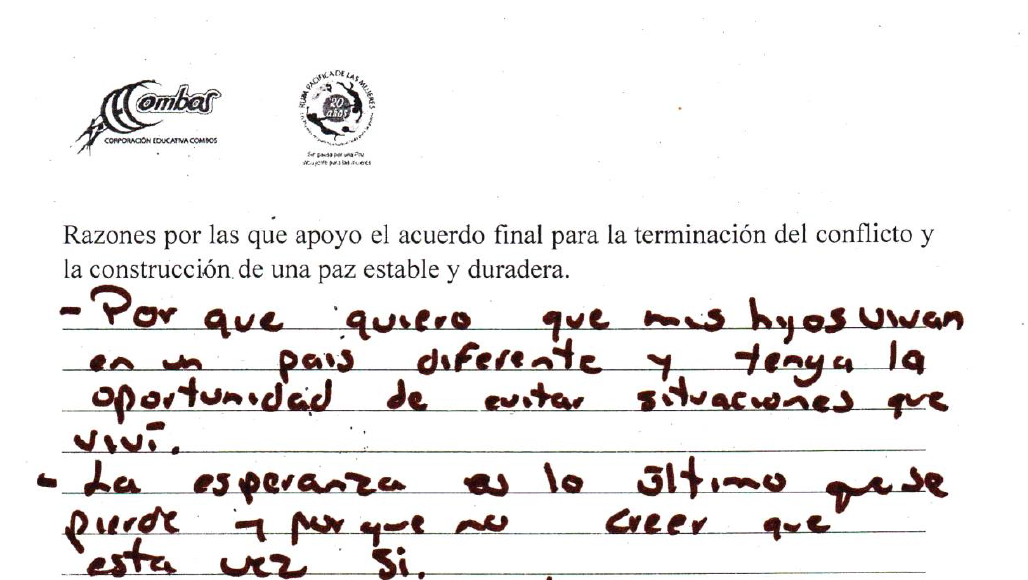 Combos
CORPORACIÓN EDUCATIVA COMBOS
RUTA PACÍFICA DE LAS MUJERES
20
años
Razones por las que apoyo el acuerdo final para la terminación del conflicto y
la construcción de una paz estable y duradera.
- Por que quiero que mis hijos vivan
en un pais diferente y tenga la
oportunidad de evitar situaciones que
viví.
- La esperanza es lo último que se
pierde y por que no creer que
esta vez si.